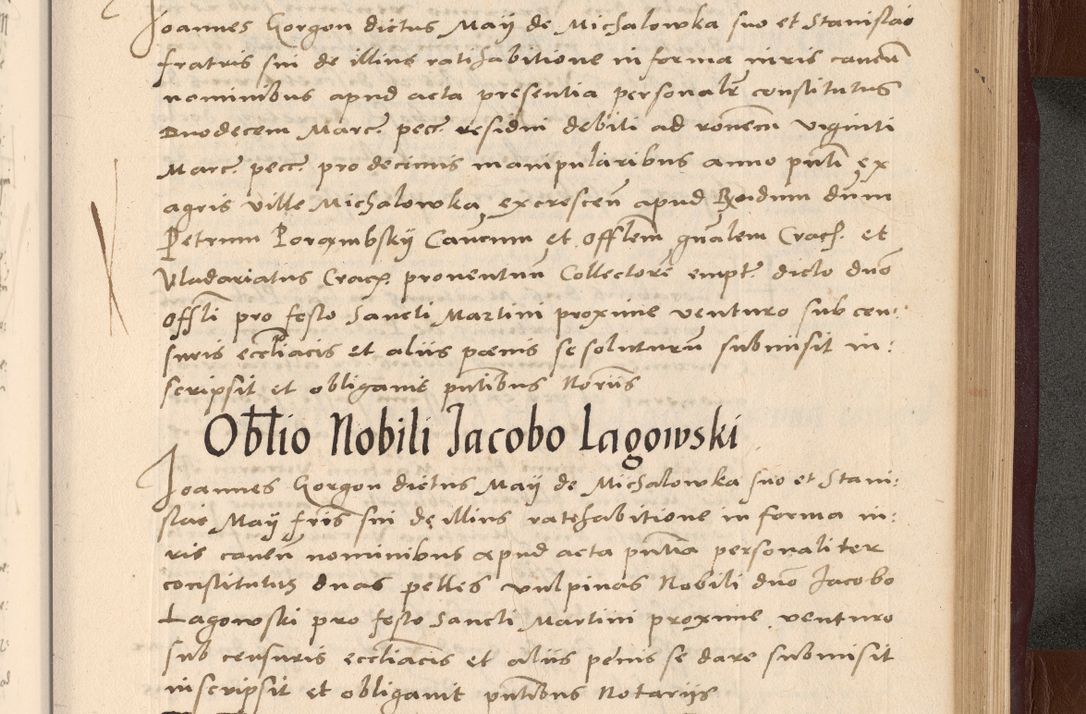 Joannes Gorgon dictus Maÿ de Michalowka suo et Stanislai
fratris sui de illius ratihabitione in forma iuris caueñ
nominibus apud acta presentia personalr̃ constitutus
Duodecem Marc. pec. residui debiti ad roñem viginti
Marc. pec. pro decimis manipularibus anno pñti ex
agris ville Michalowka, excresceñ apud Rndum dñum
Petrum Porembskÿ Cañcum et Offlem gñalem Crac. et
Vladariatus Crac. prouentuũ Collectorẽ empt. dicto dño
Offłi pro festo Sancti Martini proxime venturo sub cen:
suris eccłiacis et aliis pœnis se soluturũ submisit in:
scripsit et obligauit pñtibus Noriis
Obłio Nobili Jacobo Lagowski
Joannes Gorgon dictus Maÿ de Michalowka suo et Stani:
slai Maÿ fris̃ sui de illius ratehabitione in forma iu:
ris caueñ nominibus apud acta pñtia personaliter
constitutus duas pelles vulpinas Nobili dño Jacobo
Lagowski pro festo Sancti Martini proxime venturo
sub censuris eccłiacis et aliis penis se dare submisit
inscripsit et obligauit pñtibus Notariis